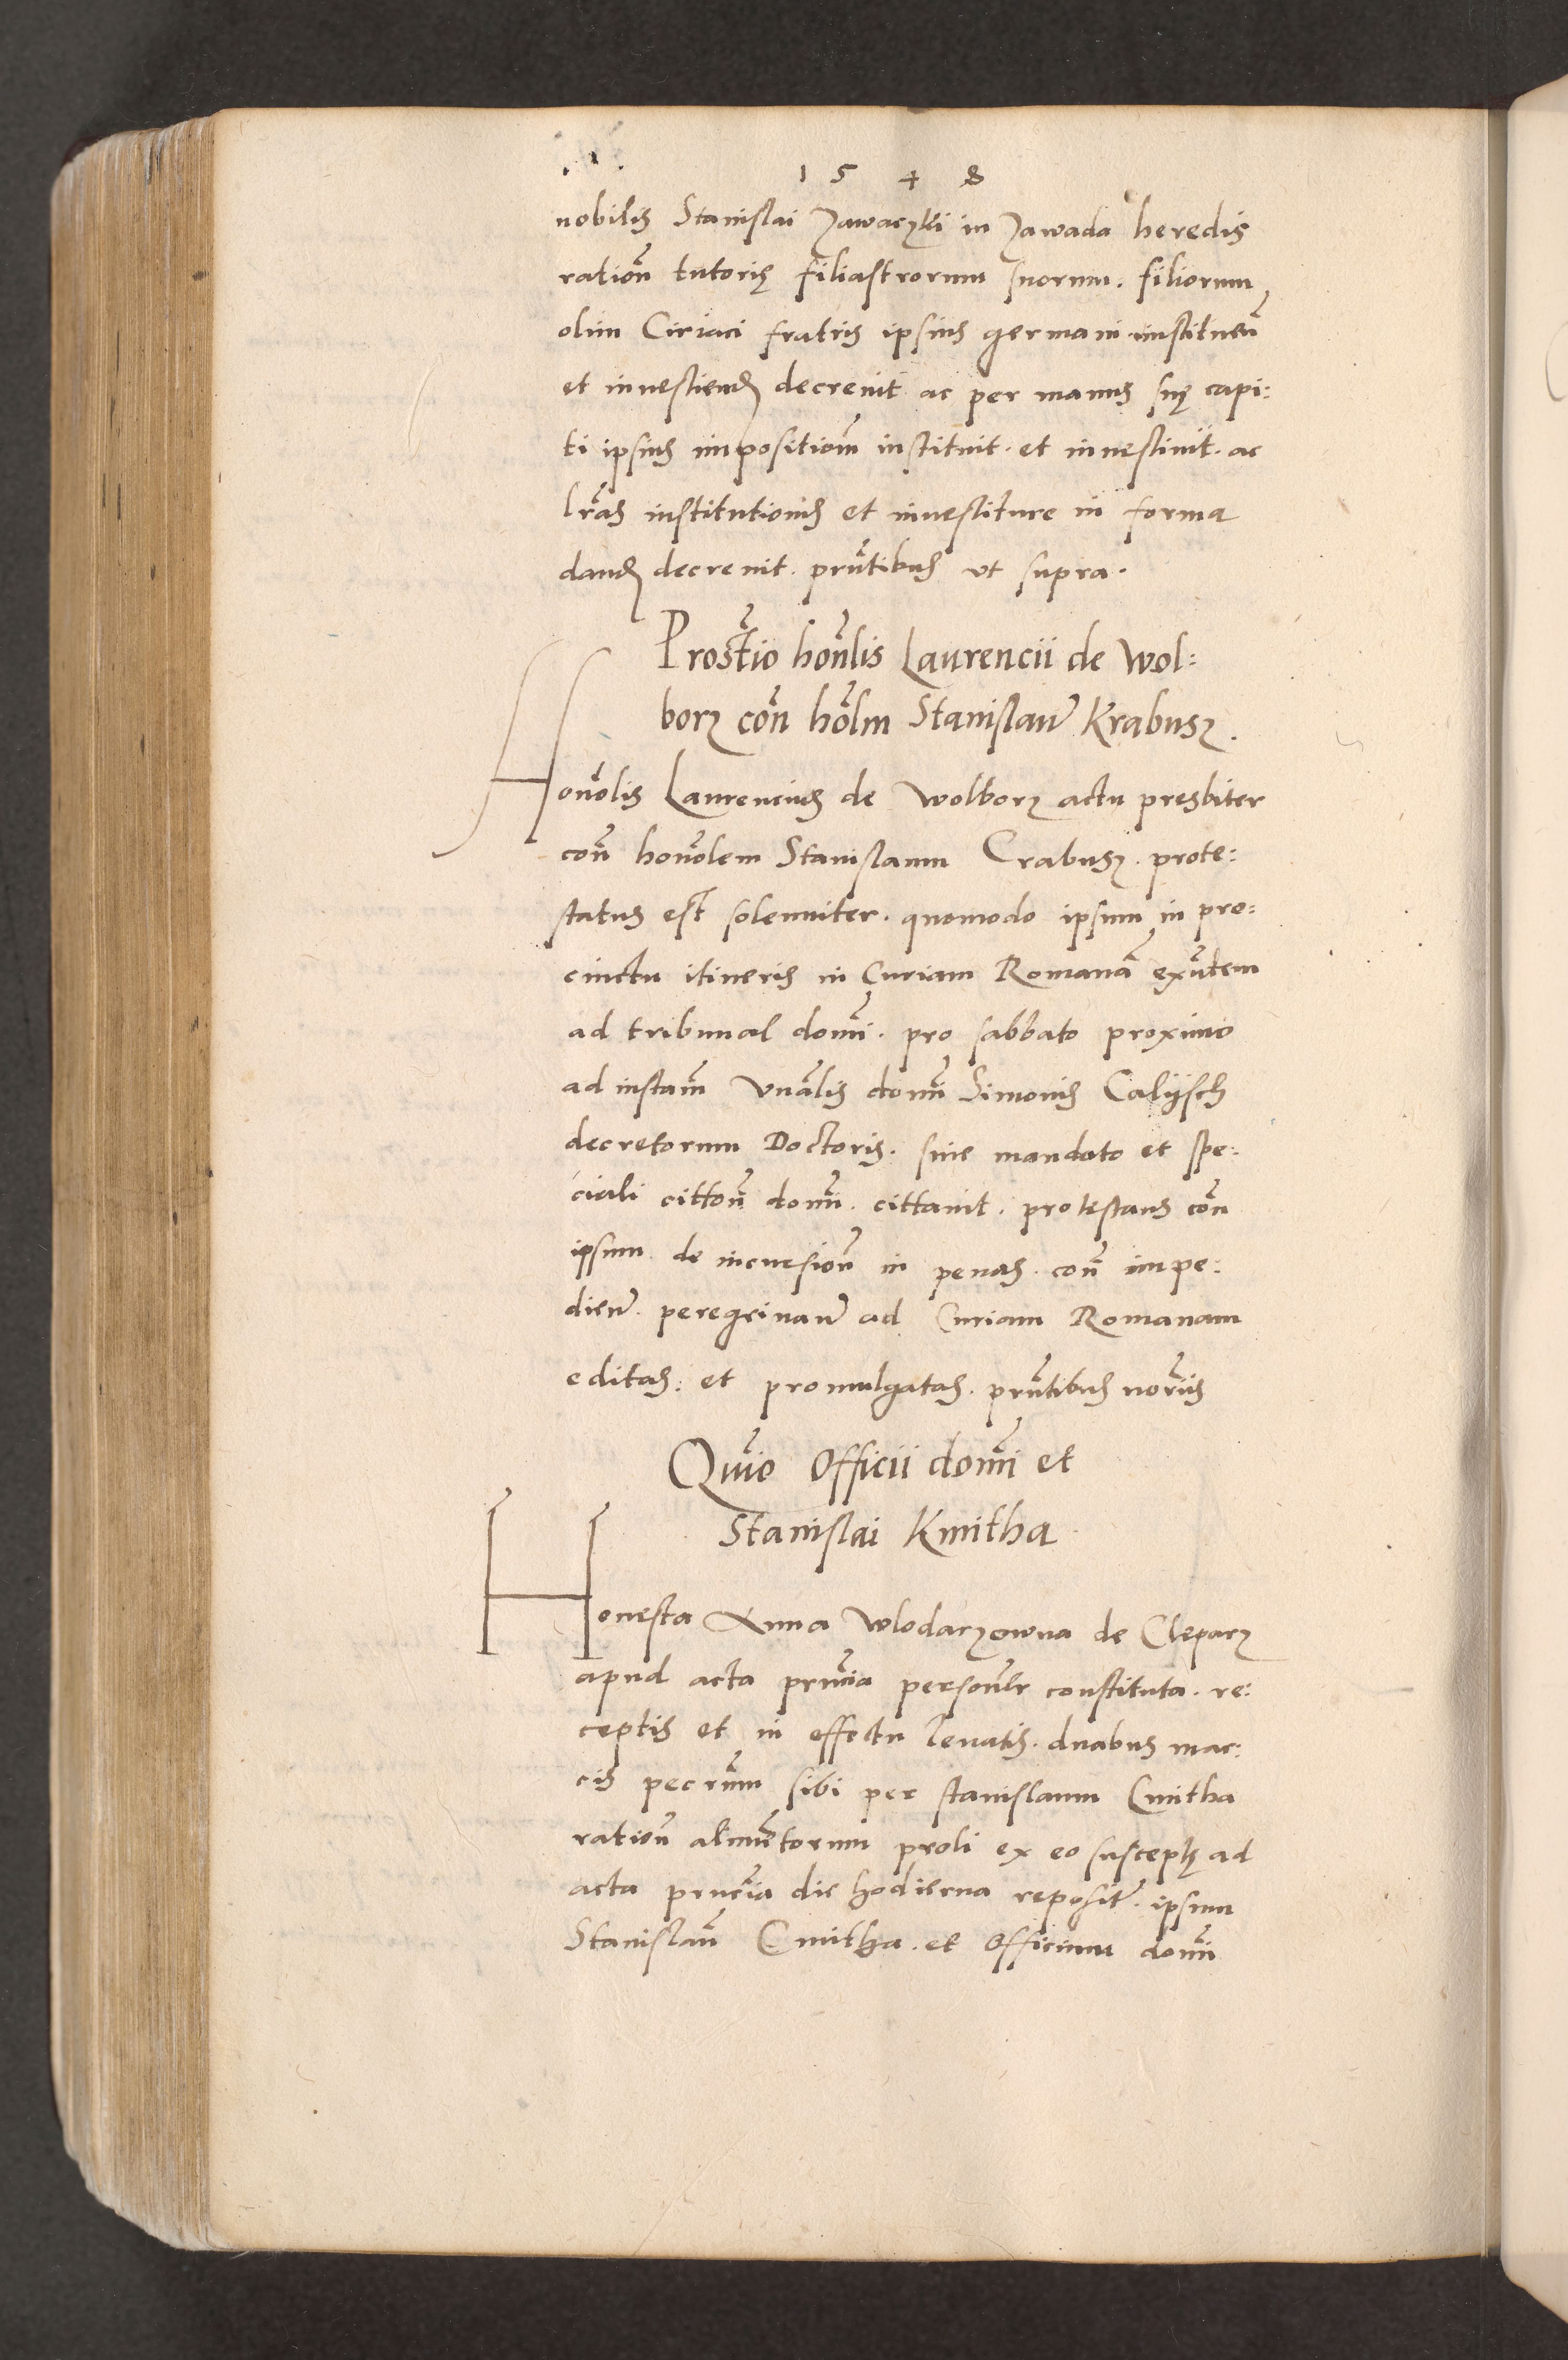 1548
nobilis Stanislai Zawaczki in Zawada heredis
ration̄ tutorię filiastrorum suorum. filiorum
olim Ciriaci fratris ipsius germani instituen̄
et inuestiend decreuit ac per manus suę capi:
ti ipsius impositiōm instituit. et inuestiuit. ac
lr̄as institutionis et inuestiture in forma
dand decreuit. prn̄tibus vt supra.
Prost̄io hon̄lis Laurencii de Wol:
borz con̄ ho͞lm Stanislaūm Krabusz.
Honōlis Laurencius de Wolborz actu presbiter
con̄ honōlem Stanislaum Crabusz. prote:
status est solenniter. quomodo ipsum in pro:
cinctu itineris in Curiam Romanā exn̄tem
ad tribunal domī. pro sabbato proximo
ad instām Vn̄alis domī Simonis Calijsch
decretorum Doctoris. sine mandato et spe:
ciali cittōn domī. cittauit. protestans con̄
ipsum de incursion̄ in penas. con̄ impe:
dien̄. peregrinan̄ ad Curiam Romanam
editas: et promulgatas. prn̄tibus nor̄iis
Quīo Officii domī et
Stanislai Kmitha
Honesta Anna Wlodarzowna de Cleparz
apud acta prn̄cia person̄lr constituta. re:
ceptis et in effectu leuatis. duabus mar:
cis pecn̄rum sibi per stanislaum Cmitha
ration̄ alimn̄torum proli ex eo susceptę ad
acta prn̄cia die hodierna reposit̄. ipsum
Stanislaū Cmitha. et Officium domī